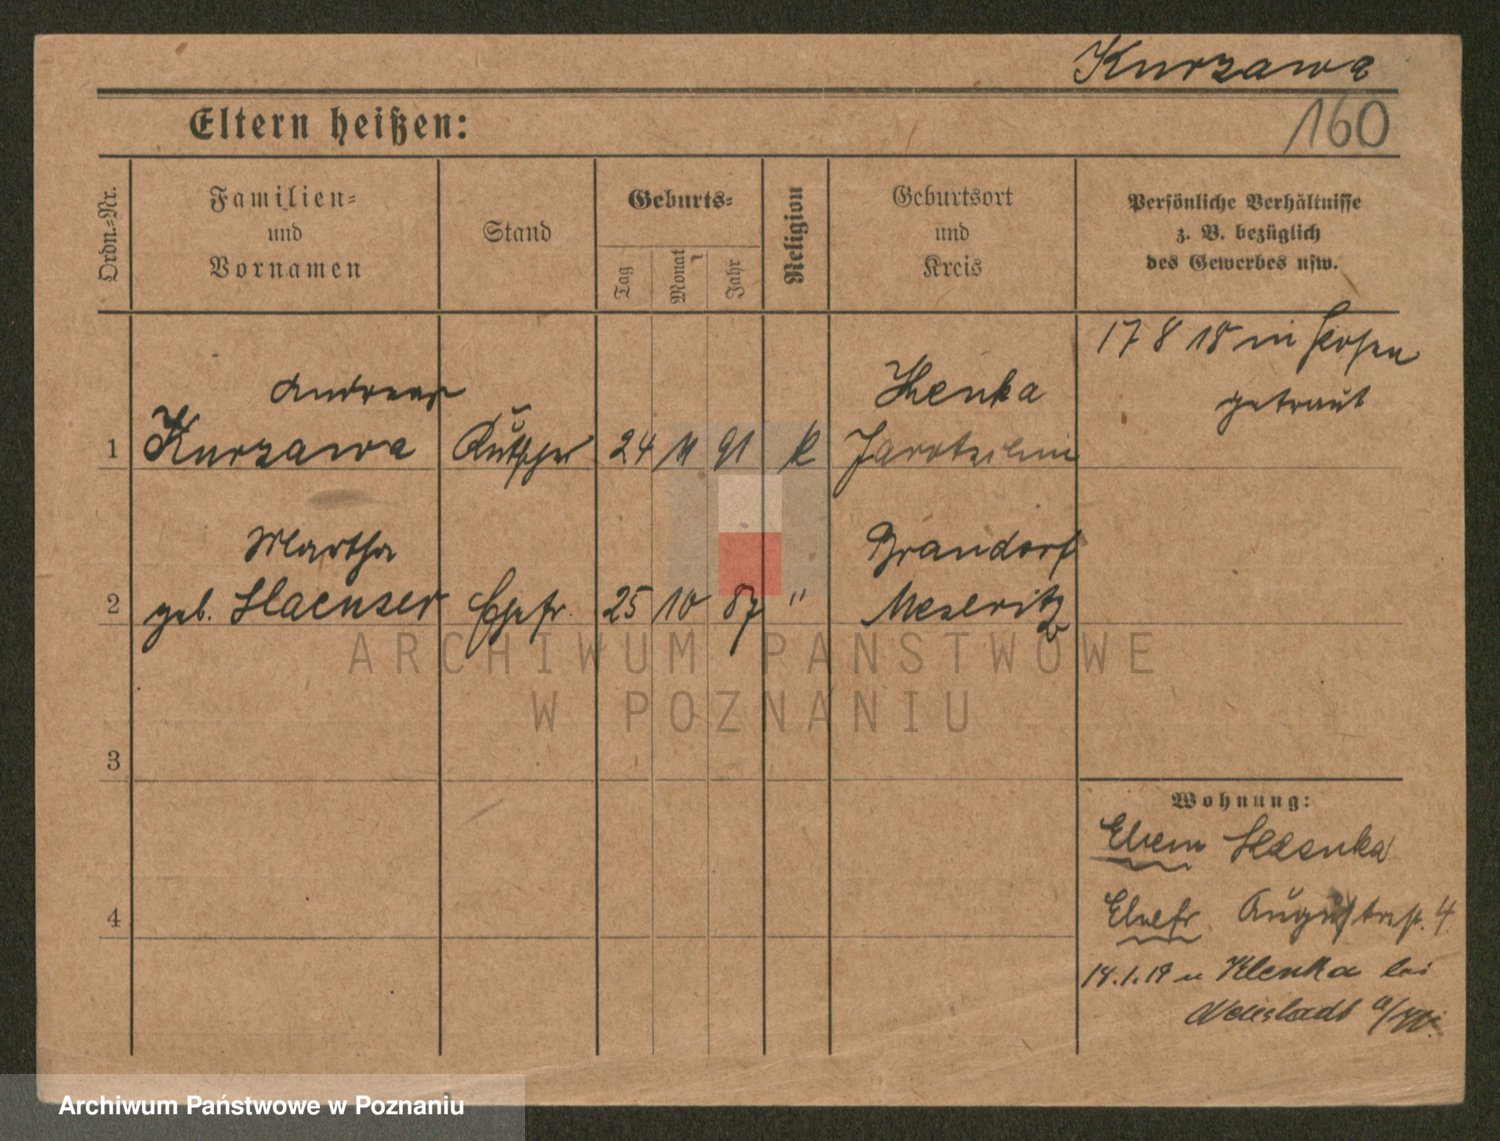 Kurzawa
160
Eltern heißen:
Ordn.-Nr.
Familien-
und
Vornamen
Stand
Geburts-
Tag
Monat
Jahr
Religion
Geburtsort
und
Kreis
Persönliche Verhältnisse
z. B. bezüglich
des Gewerbes usw.
17 8 18 in Posen
getraut
Andreas
1 Kurzawa Kutscher 24 11 91 k
Klenka
Jarotschin
Martha
2 geb. Haenser Ehefr. 25 10 87 "
Brandorf
Meseritz
3
4
Wohnung:
Ehem Klenka
Ehefr Augustastr. 4
18.1.19 n Klenka bei
Neustadt a/W.
ARCHIWUM PAŃSTWOWE
W POZNANIU
Archiwum Państwowe w Poznaniu